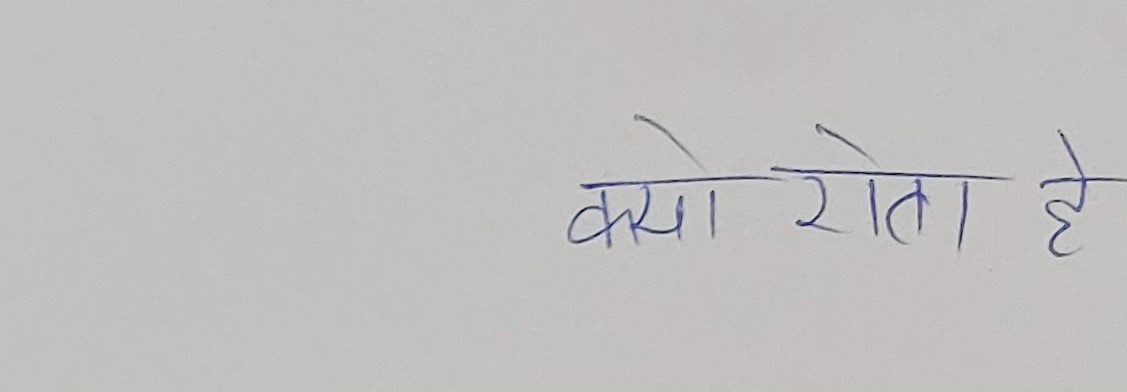 क्यो रोता हे